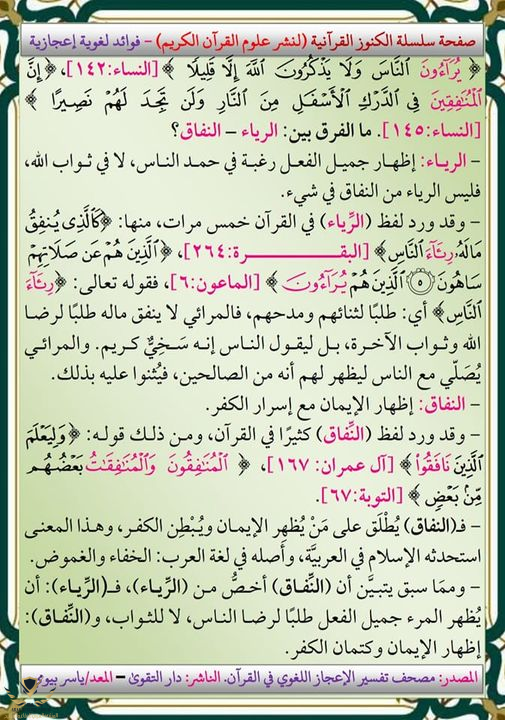 صفحة سلسلة الكنوز القرآنية (لنشر علوم القرآن الكريم) – فوائد لغوية إعجازية
﴿ يُرَآءُونَ ٱلنَّاسَ وَلَا يَذۡكُرُونَ ٱللَّهَ إِلَّا قَلِيلٗا ﴾ [النساء:١٤٢]، ﴿ إِنَّ
ٱلۡمُنَٰفِقِينَ فِي ٱلدَّرۡكِ ٱلۡأَسۡفَلِ مِنَ ٱلنَّارِ وَلَن تَجِدَ لَهُمۡ نَصِيرًا ﴾
[النساء:١٤٥]. ما الفرق بين: الرياء – النفاق؟
– الرياء: إظهار جميل الفعل رغبة في حمد الناس، لا في ثواب الله،
فليس الرياء من النفاق في شيء.
– وقد ورد لفظ (الرِّياء) في القرآن خمس مرات، منها: ﴿كَٱلَّذِي يُنفِقُ
مَالَهُۥ رِئَآءَ ٱلنَّاسِ﴾ [البقـرة:٢٦٤]، ﴿ٱلَّذِينَ هُمۡ عَن صَلَاتِهِمۡ
سَاهُونَ ٥ ٱلَّذِينَ هُمۡ يُرَآءُونَ ﴾ [الماعون:٦]، فقوله تعالى: ﴿ رِئَآءَ
ٱلنَّاسِ﴾ أي: طلبًا لثنائهم ومدحهم، فالمرائي لا ينفق ماله طلبًا لرضا
الله وثواب الآخرة، بل ليقول الناس إنه سَخِيٌّ كريم. والمرائي
يُصَلّي مع الناس ليظهر لهم أنه من الصالحين، فيُثنوا عليه بذلك.
– النفاق: إظهار الإيمان مع إسرار الكفر.
– وقد ورد لفظ (النِّفاق) كثيرًا في القرآن، ومن ذلك قوله: ﴿وَلِيَعۡلَمَ
ٱلَّذِينَ نَافَقُواْ ﴾ [آل عمران: ١٦٧]، ﴿ ٱلۡمُنَٰفِقُونَ وَٱلۡمُنَٰفِقَٰتُ بَعۡضُهُم
مِّنۢ بَعۡضٖ ﴾ [التوبة:٦٧].
– فـ(النفاق) يُطْلَق على مَنْ يُظهر الإيمان ويُبْطِن الكفر، وهذا المعنى
استحدثه الإسلام في العربيَّة، وأصله في لغة العرب: الخفاء والغموض.
– ومما سبق يتبيَّن أن (النِّفاق) أخصُّ من (الرِّياء)، فـ(الرِّياء): أن
يُظهر المرء جميل الفعل طلبًا لرضا الناس، لا للثواب، و(النِّفاق):
إظهار الإيمان وكتمان الكفر.
المصدر: مصحف تفسير الإعجاز اللغوي في القرآن. الناشر: دار التقوى – المعد/ياسر بيومي